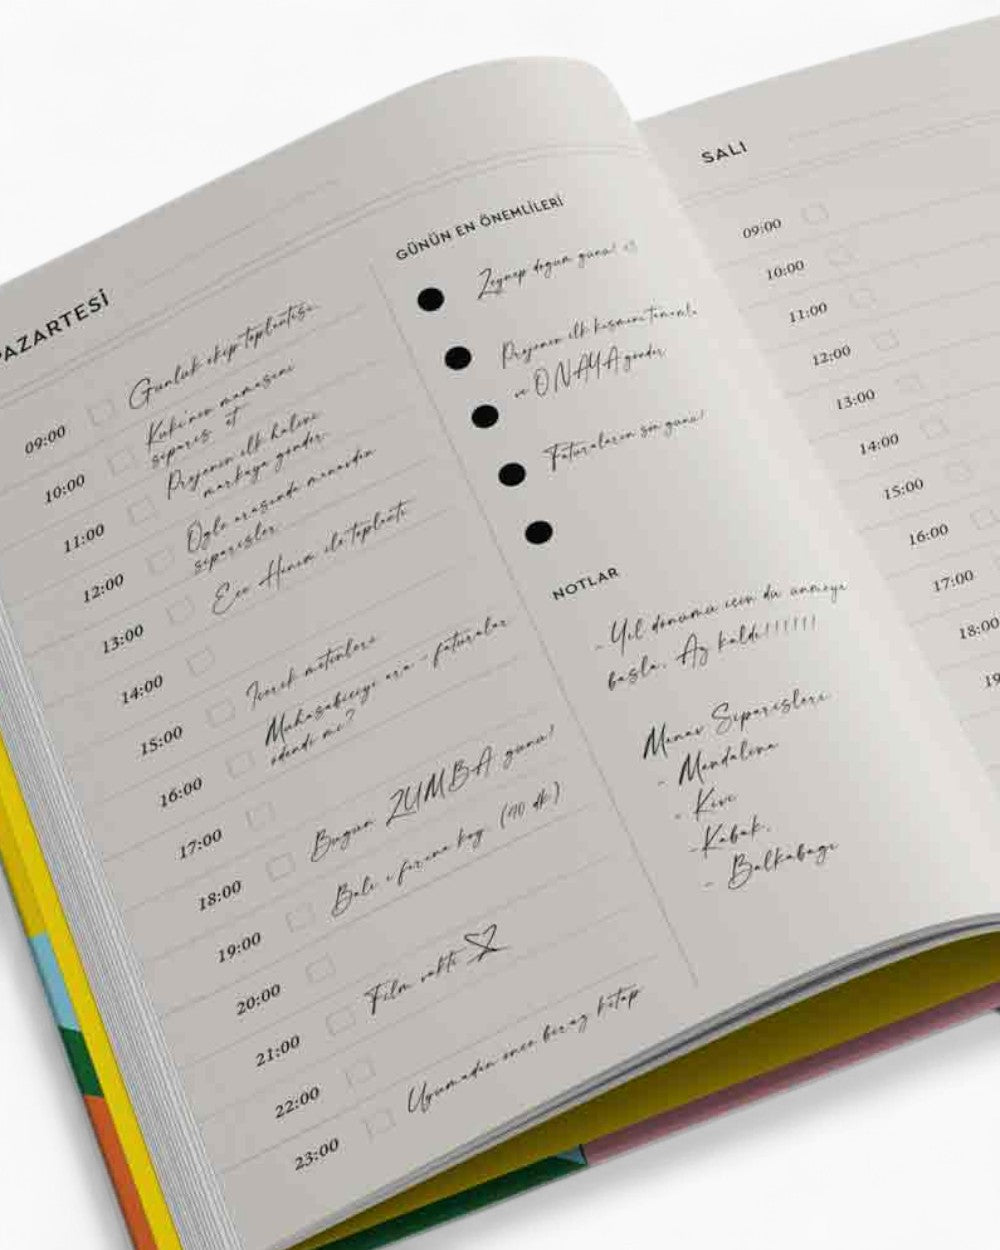 PAZARTESİ
09:00 Günlük ekip toplantısı
10:00 Kuki'nin mamasını
sipariş et
11:00 Projenin ilk halini
markaya gönder
12:00 Öğle arasında manavdan
siparişler
13:00 Ece Hanım ile toplantı
14:00
15:00 İçerik metinleri
16:00 Muhasebeciyi ara - faturalar
ödendi mi?
17:00
18:00 Bugün ZUMBA günü!
19:00 Balı fırına koy (40 dk)
20:00
21:00 Film vakti
22:00
23:00 Uyumadan önce biraz kitap
GÜNÜN EN ÖNEMLİLERİ
Zeynep doğum günü!
Projenin ilk kısmını
ve ONAYA gönder
Faturaların son günü!
NOTLAR
- Yıl dönümü için düşünmeye
başla. Az kaldı!!!!!!
Manav Siparişleri
- Mandalina
- Kivi
- Kabak.
- Balkabağı
SALI
09:00
10:00
11:00
12:00
13:00
14:00
15:00
16:00
17:00
18:00